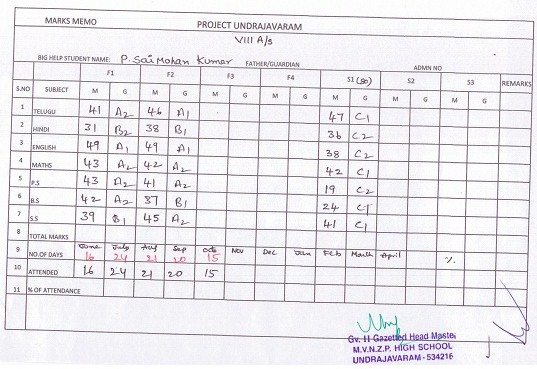 MARKS MEMO PROJECT UNDRAJAVARAM
VIII A/s
BIG HELP STUDENT NAME: P. Sai Mohan Kumar FATHER/GUARDIAN ADMN NO
F1 F2 F3 F4 S1 (80) S2 S3 REMARKS
S.NO SUBJECT M G M G M G M G M G M G M G
1 TELUGU 41 A2 46 A1 47 C1
2 HINDI 31 B2 38 B1 36 C2
3 ENGLISH 49 A1 49 A1 38 C2
4 MATHS 43 A2 42 A2 42 C1
5 P.S 43 A2 41 A2 19 C2
6 B.S 42 A2 37 B1 24 C1
7 S.S 39 B1 45 A2 41 C1
8 TOTAL MARKS
June July Aug Sep Octo Nov Dec Jan Feb March April
9 NO.OF DAYS 16 24 21 20 15 %
10 ATTENDED 16 24 21 20 15
11 % OF ATTENDANCE
Gv. II Gazetted Head Master
M.V.N.Z.P. HIGH SCHOOL
UNDRAJAVARAM - 534216